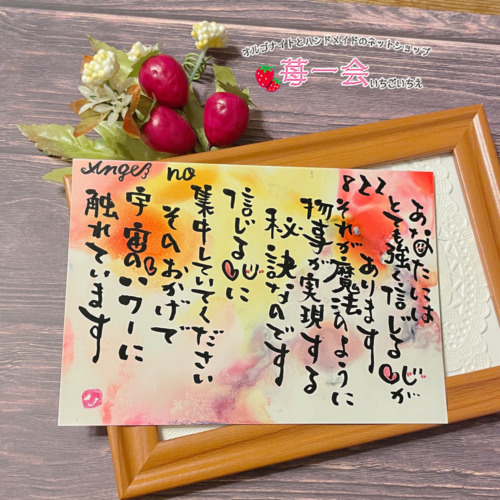 オルゴナイトとハンドメイドのネットショップ
苺一会
いちごいちえ
Angel no
822
あなたには
とても強く信じる心が
あります
それが魔法のように
物事が実現する
秘訣なのです
信じる心に
集中していてください
そのおかげで
宇宙のパワーに
触れています